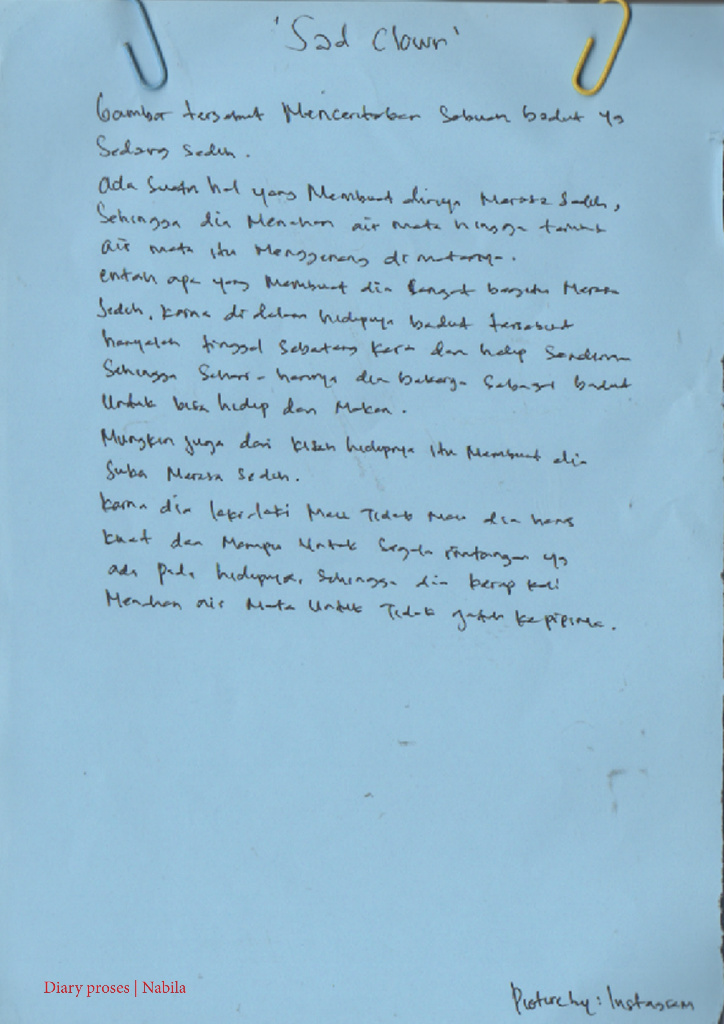 'Sad Clown'
Gambar tersebut Menceritakan Sebuah badut yg
Sedang sedih.
Ada Suatu hal yang Membuat dirinya Merasa Sedih,
Sehingga dia Menahan air mata hingga tampak
air mata itu Menggenang di matanya.
entah apa yang Membuat dia Sangat begitu Merasa
Sedih, Karna di dalam hidupnya badut tersebut
hanyalah tinggal Sebatang Kara dan hidup Sendirian
Sehingga Sehari-harinya dia bekerja Sebagai badut
Untuk bisa hidup dan Makan.
Mungkin juga dari kisah hidupnya itu Membuat dia
Suka Merasa Sedih.
Karna dia laki-laki Mau Tidak Mau dia harus
Kuat dan Mampu Untuk Segala rintangan yg
ada pada hidupnya, Sehingga dia berap kali
Menahan air Mata Untuk Tidak jatuh ke pipinya.
Diary proses | Nabila
Picture by : Instagram